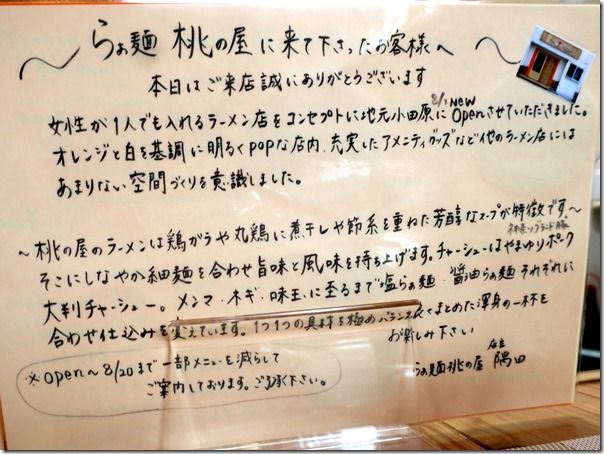 らぁ麺 桃の屋 に来て下さったお客様へ
本日はご来店誠にありがとうございます
女性が1人でも入れるラーメン店をコンセプトに地元小田原に8/1 NEW Openさせていただきました。
オレンジと白を基調に明るくpopな店内、充実したアメニティグッズなど他のラーメン店には
あまりない空間づくりを意識しました。
~桃の屋のラーメンは鶏がらや丸鶏に煮干しや節系を重ねた芳醇なスープが特徴です。~
神奈川ブランド豚
そこにしなやか細麺を合わせ旨味と風味を持ち上げます。チャーシューはやまゆりポーク
大判チャーシュー。メンマ・木ギ・味玉に至るまで塩らぁ麺・醤油らぁ麺それぞれに
合わせ仕込みを変えています。1つ1つの具材を極めバランスよくまとめた渾身の一杯を
お楽しみ下さい
※open~8/20まで一部メニューを減らして
ご案内しております。ご了承下さい。
店主
らぁ麺桃の屋 隅田